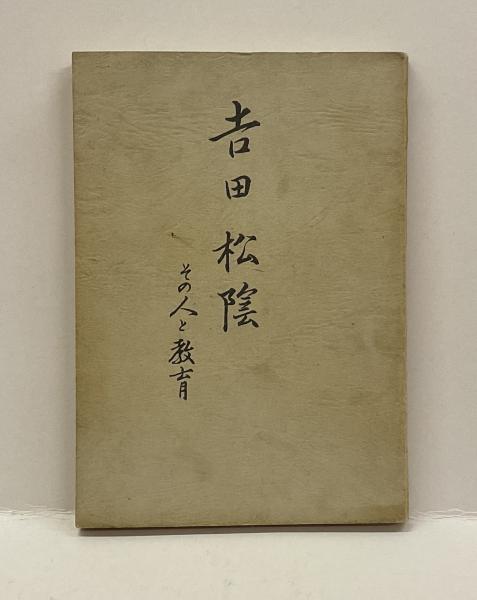 吉田松陰
その人と教育